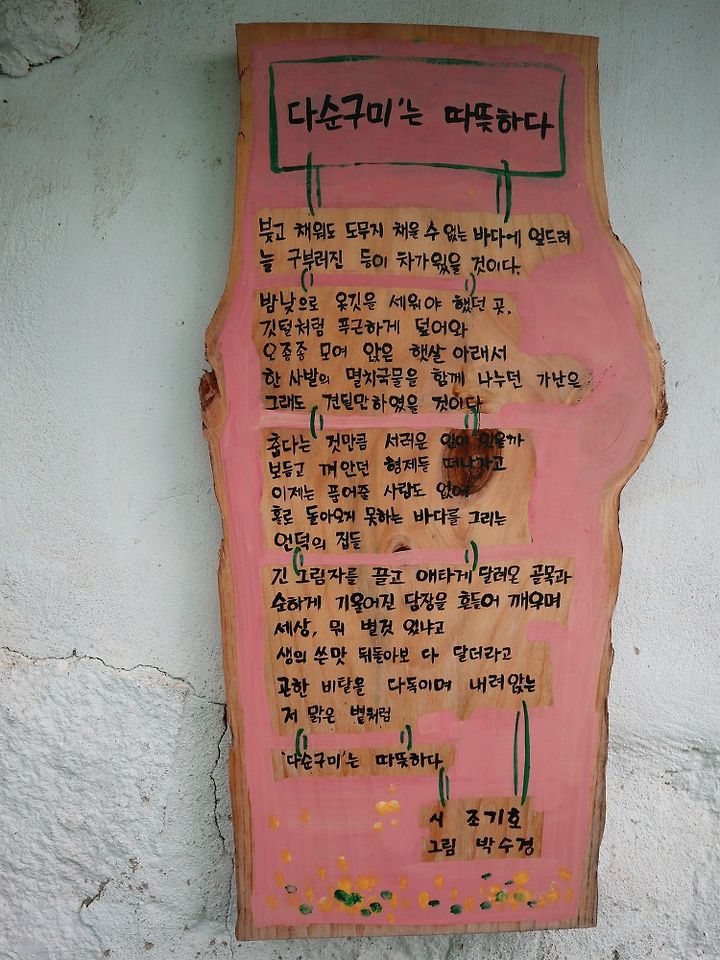 '다순구미'는 따뜻하다
붓고 채워도 도무지 채울 수 없는 바다에 엎드려
늘 구부러진 등이 차가웠을 것이다.
밤낮으로 옷깃을 세워야 했던 곳,
깃털처럼 푸근하게 덮어와
오종종 모여 앉은 햇살 아래서
한 사발의 멸치국물을 함께 나누던 가난은
그래도 견딜만하였을 것이다
춥다는 것만큼 서러운 일이 있을까
보듬고 껴안던 형제들 떠나가고
이제는 품어줄 사람도 없어
홀로 돌아오지 못하는 바다를 그리는
언덕의 집들
긴 그림자를 끌고 애타게 달려온 골목과
순하게 기울어진 담장을 흔들어 깨우며
세상, 뭐 별것 있냐고
생의 쓴맛 뒤돌아보 다 달더라고
곤한 비탈을 다독이며 내려앉는
저 맑은 볕처럼
'다순구미'는 따뜻하다
시 조기호
그림 박수경